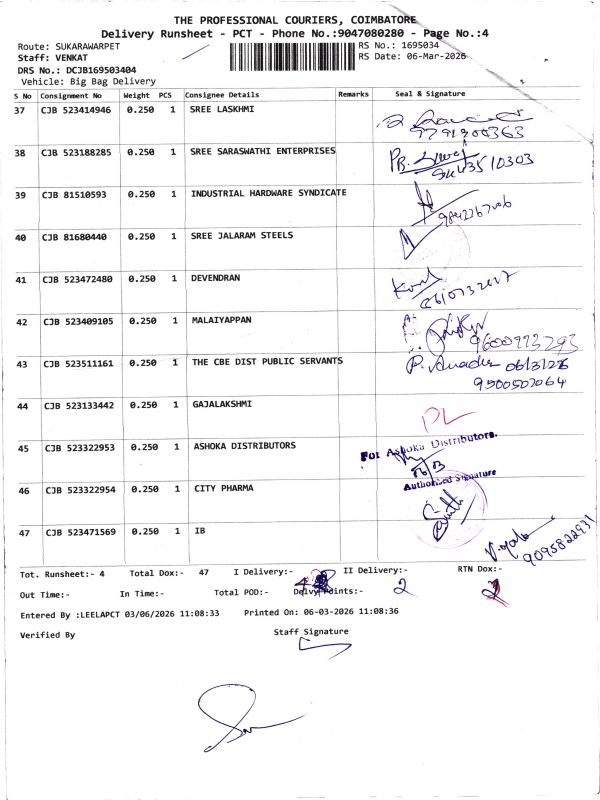 THE PROFESSIONAL COURIERS, COIMBATORE
Delivery Runsheet - PCT - Phone No.:9047080280 - Page No.:4
Route: SUKARAWARPET
RS No.: 1695034
Staff: VENKAT
RS Date: 06-Mar-2026
DRS No.: DCJB169503404
Vehicle: Big Bag Delivery
S No Consignment No Weight PCS Consignee Details Remarks Seal & Signature
37 CJB 523414946 0.250 1 SREE LASKHMI
9791900363
38 CJB 523188285 0.250 1 SREE SARASWATHI ENTERPRISES
39 CJB 81510593 0.250 1 INDUSTRIAL HARDWARE SYNDICATE
40 CJB 81680440 0.250 1 SREE JALARAM STEELS
41 CJB 523472480 0.250 1 DEVENDRAN
42 CJB 523409105 0.250 1 MALAIYAPPAN
9600993293
43 CJB 523511161 0.250 1 THE CBE DIST PUBLIC SERVANTS
9500502064
44 CJB 523133442 0.250 1 GAJALAKSHMI
DL
45 CJB 523322953 0.250 1 ASHOKA DISTRIBUTORS
For Ashoka Distributors.
Authorised Signature
46 CJB 523322954 0.250 1 CITY PHARMA
47 CJB 523471569 0.250 1 IB
9095822931
Tot. Runsheet:- 4 Total Dox:- 47 I Delivery:- II Delivery:- RTN Dox:-
Out Time:- In Time:- Total POD:- Delvy Points:- 2
Entered By :LEELAPCT 03/06/2026 11:08:33 Printed On: 06-03-2026 11:08:36
Verified By Staff Signature